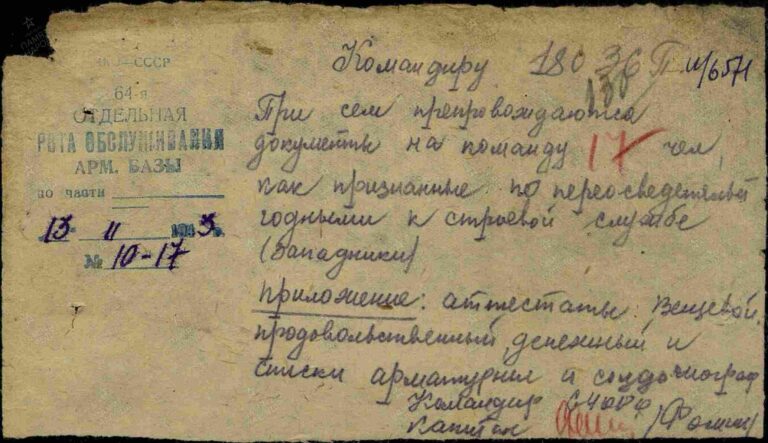 НКО–СССР
64-я
ОТДЕЛЬНАЯ
РОТА ОБСЛУЖИВАНИЯ
АРМ. БАЗЫ
по части
13 11 1943 г.
№ 10-17
Командиру 180 36 П и/6571
130
При сем препровождаются
документы на команду 17 чел,
как признанные по переосведетельст
годными к строевой службе
(Западники)
приложение: аттестаты: Вещевой,
продовольственный, денежный и
списки арматурные и
Командир 64 ОРО
Капитан /Фомин/